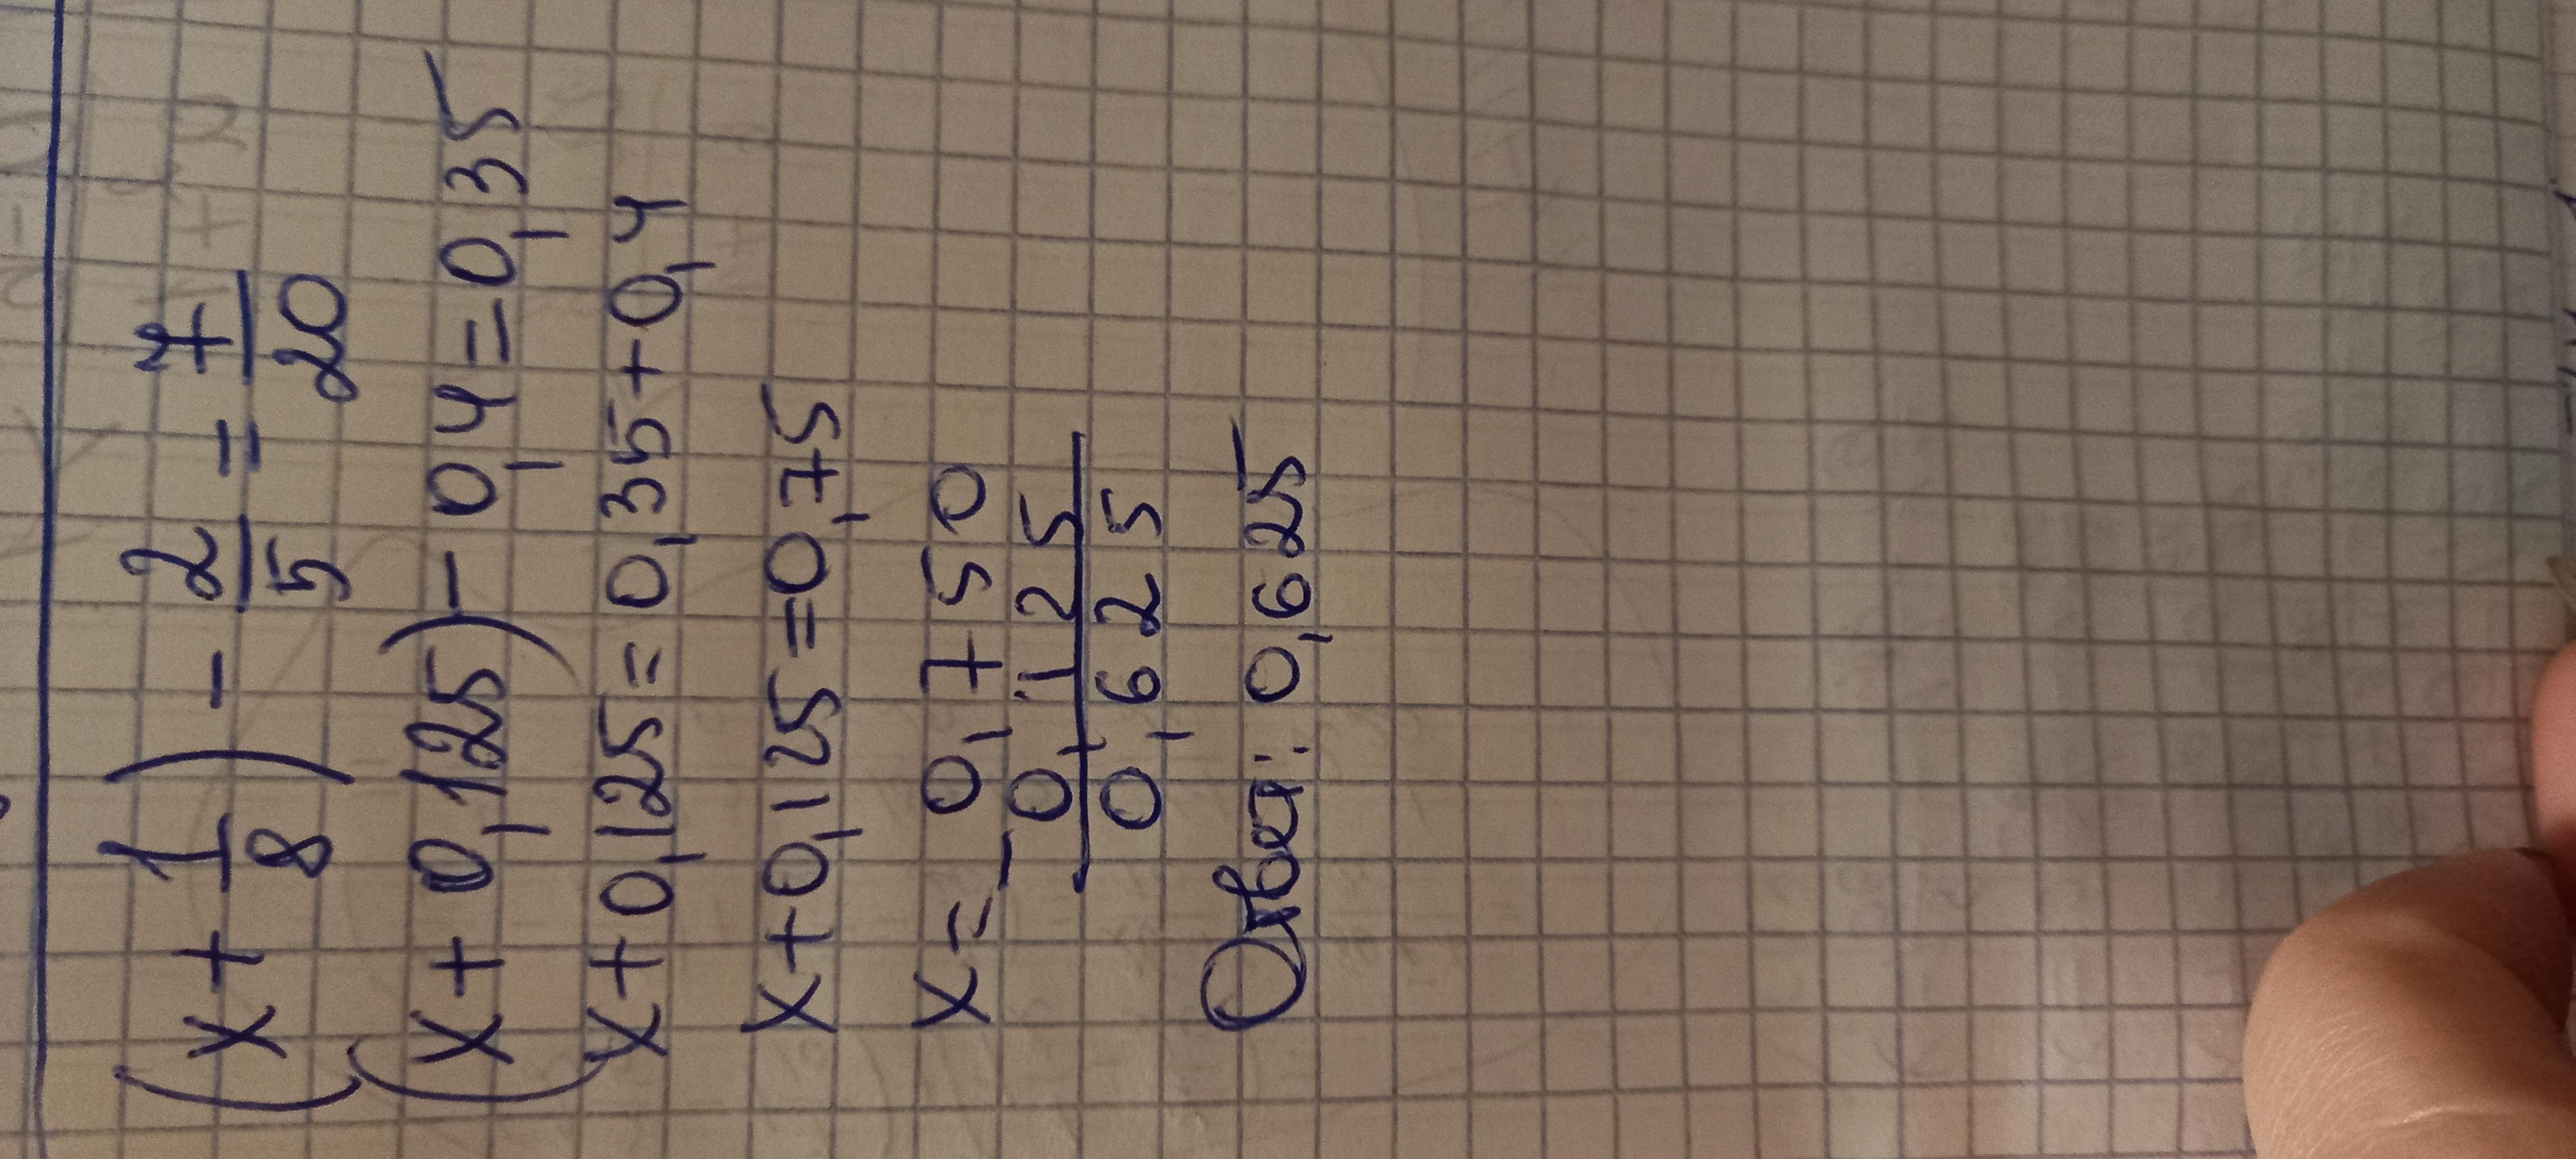 (x + 1/8) - 2/5 = 7/20
(x + 0,125) - 0,4 = 0,35
x + 0,125 = 0,35 + 0,4
x + 0,125 = 0,75
x = 0,750
- 0,125
0,625
Ответ: 0,625